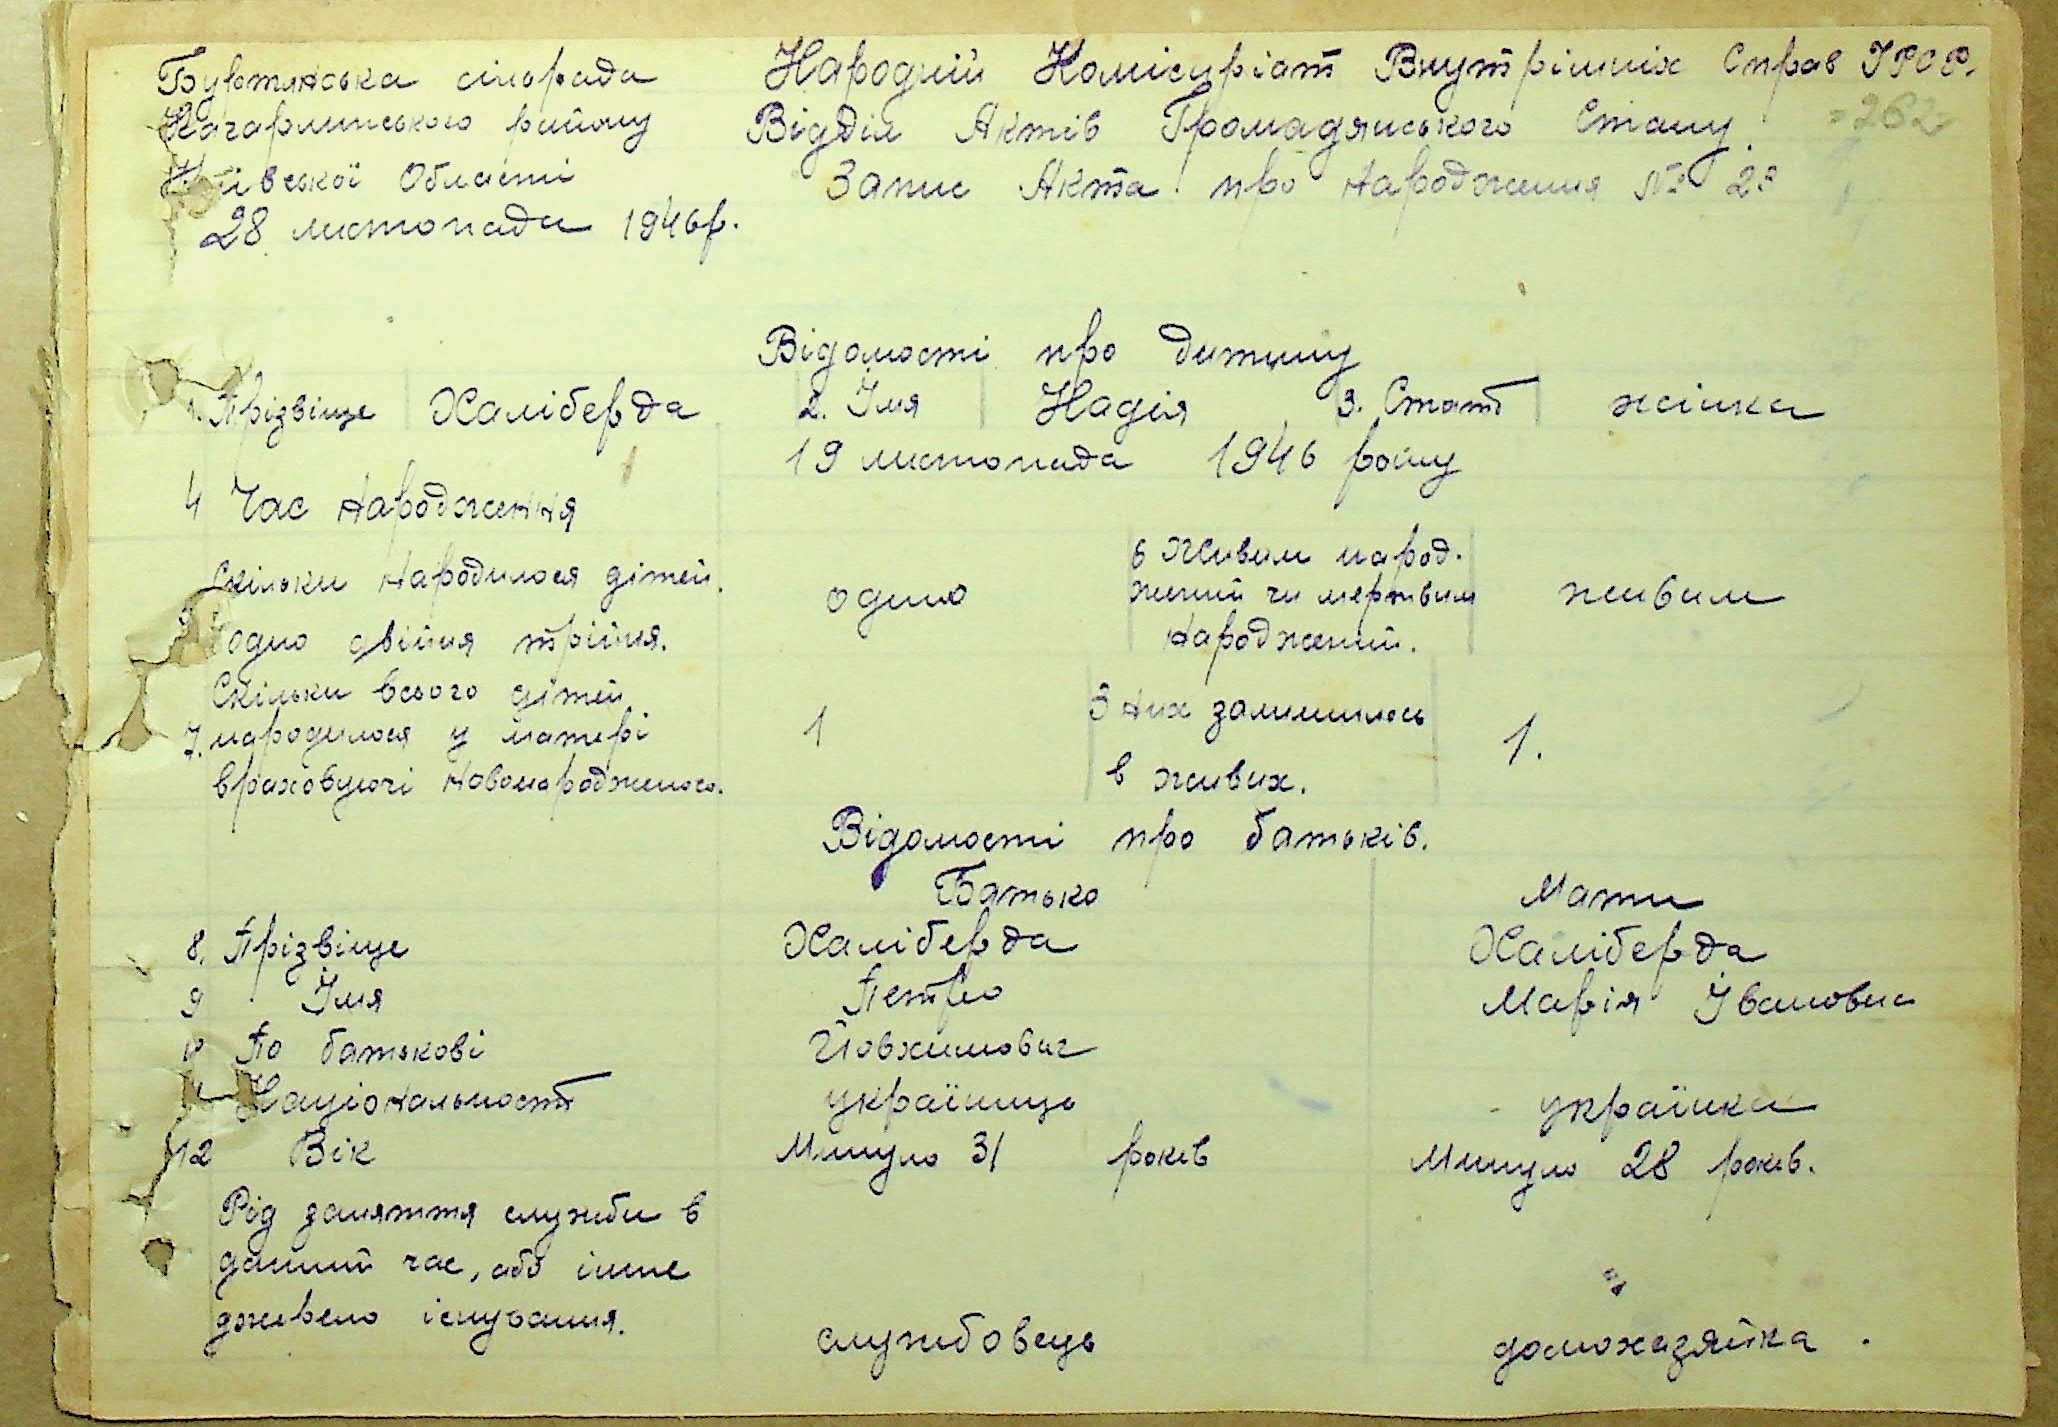 Буртянська сільрада Народній Комісуріат Внутрішніх Справ УРСР.
Кагарлицького району Відділ Актів Громадянського Стану. 262
Київської Області Запис Акта про народження № 29
28 листопада 1946р.
Відомості про дитину
1. Прізвіще Халіберда 2. Імя Надія 3. Стать жінка
4 Час народження 19 листопада 1946 року
Скільки народилося дітей. 6 Живим народ.
одно двійня трійня. одно жений чи мертвим живим
народжений.
Скільки всього дітей З них залишилось
7. народилося у матері 1 1.
враховуючі новонародженого. в живих.
Відомості про батьків.
Батько Мати
8. Прізвіще Халіберда Халіберда
9 Імя Петро Марія Івановна
По батькові Йовхимович
Національность українець українка
12 Вік Минуло 31 років Минуло 28 років.
Рід заняття служби в
данний час, або інше "
джерело існування. службовець домохазяйка.